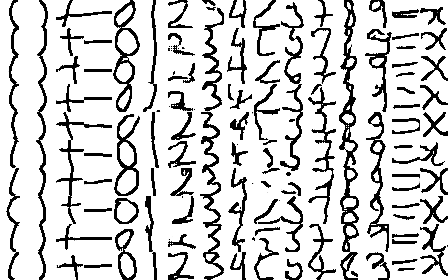 ( ) + - 0 1 2 3 4 7 8 9 = x
( ) + - 0 1 2 3 4 7 8 9 = x
( ) + - 0 1 2 3 4 7 8 9 = x
( ) + - 0 1 2 3 4 7 8 9 = x
( ) + - 0 1 2 3 4 7 8 9 = x
( ) + - 0 1 2 3 4 7 8 9 = x
( ) + - 0 1 2 3 4 7 8 9 = x
( ) + - 0 1 2 3 4 7 8 9 = x
( ) + - 0 1 2 3 4 7 8 9 = x
( ) + - 0 1 2 3 4 7 8 9 = x